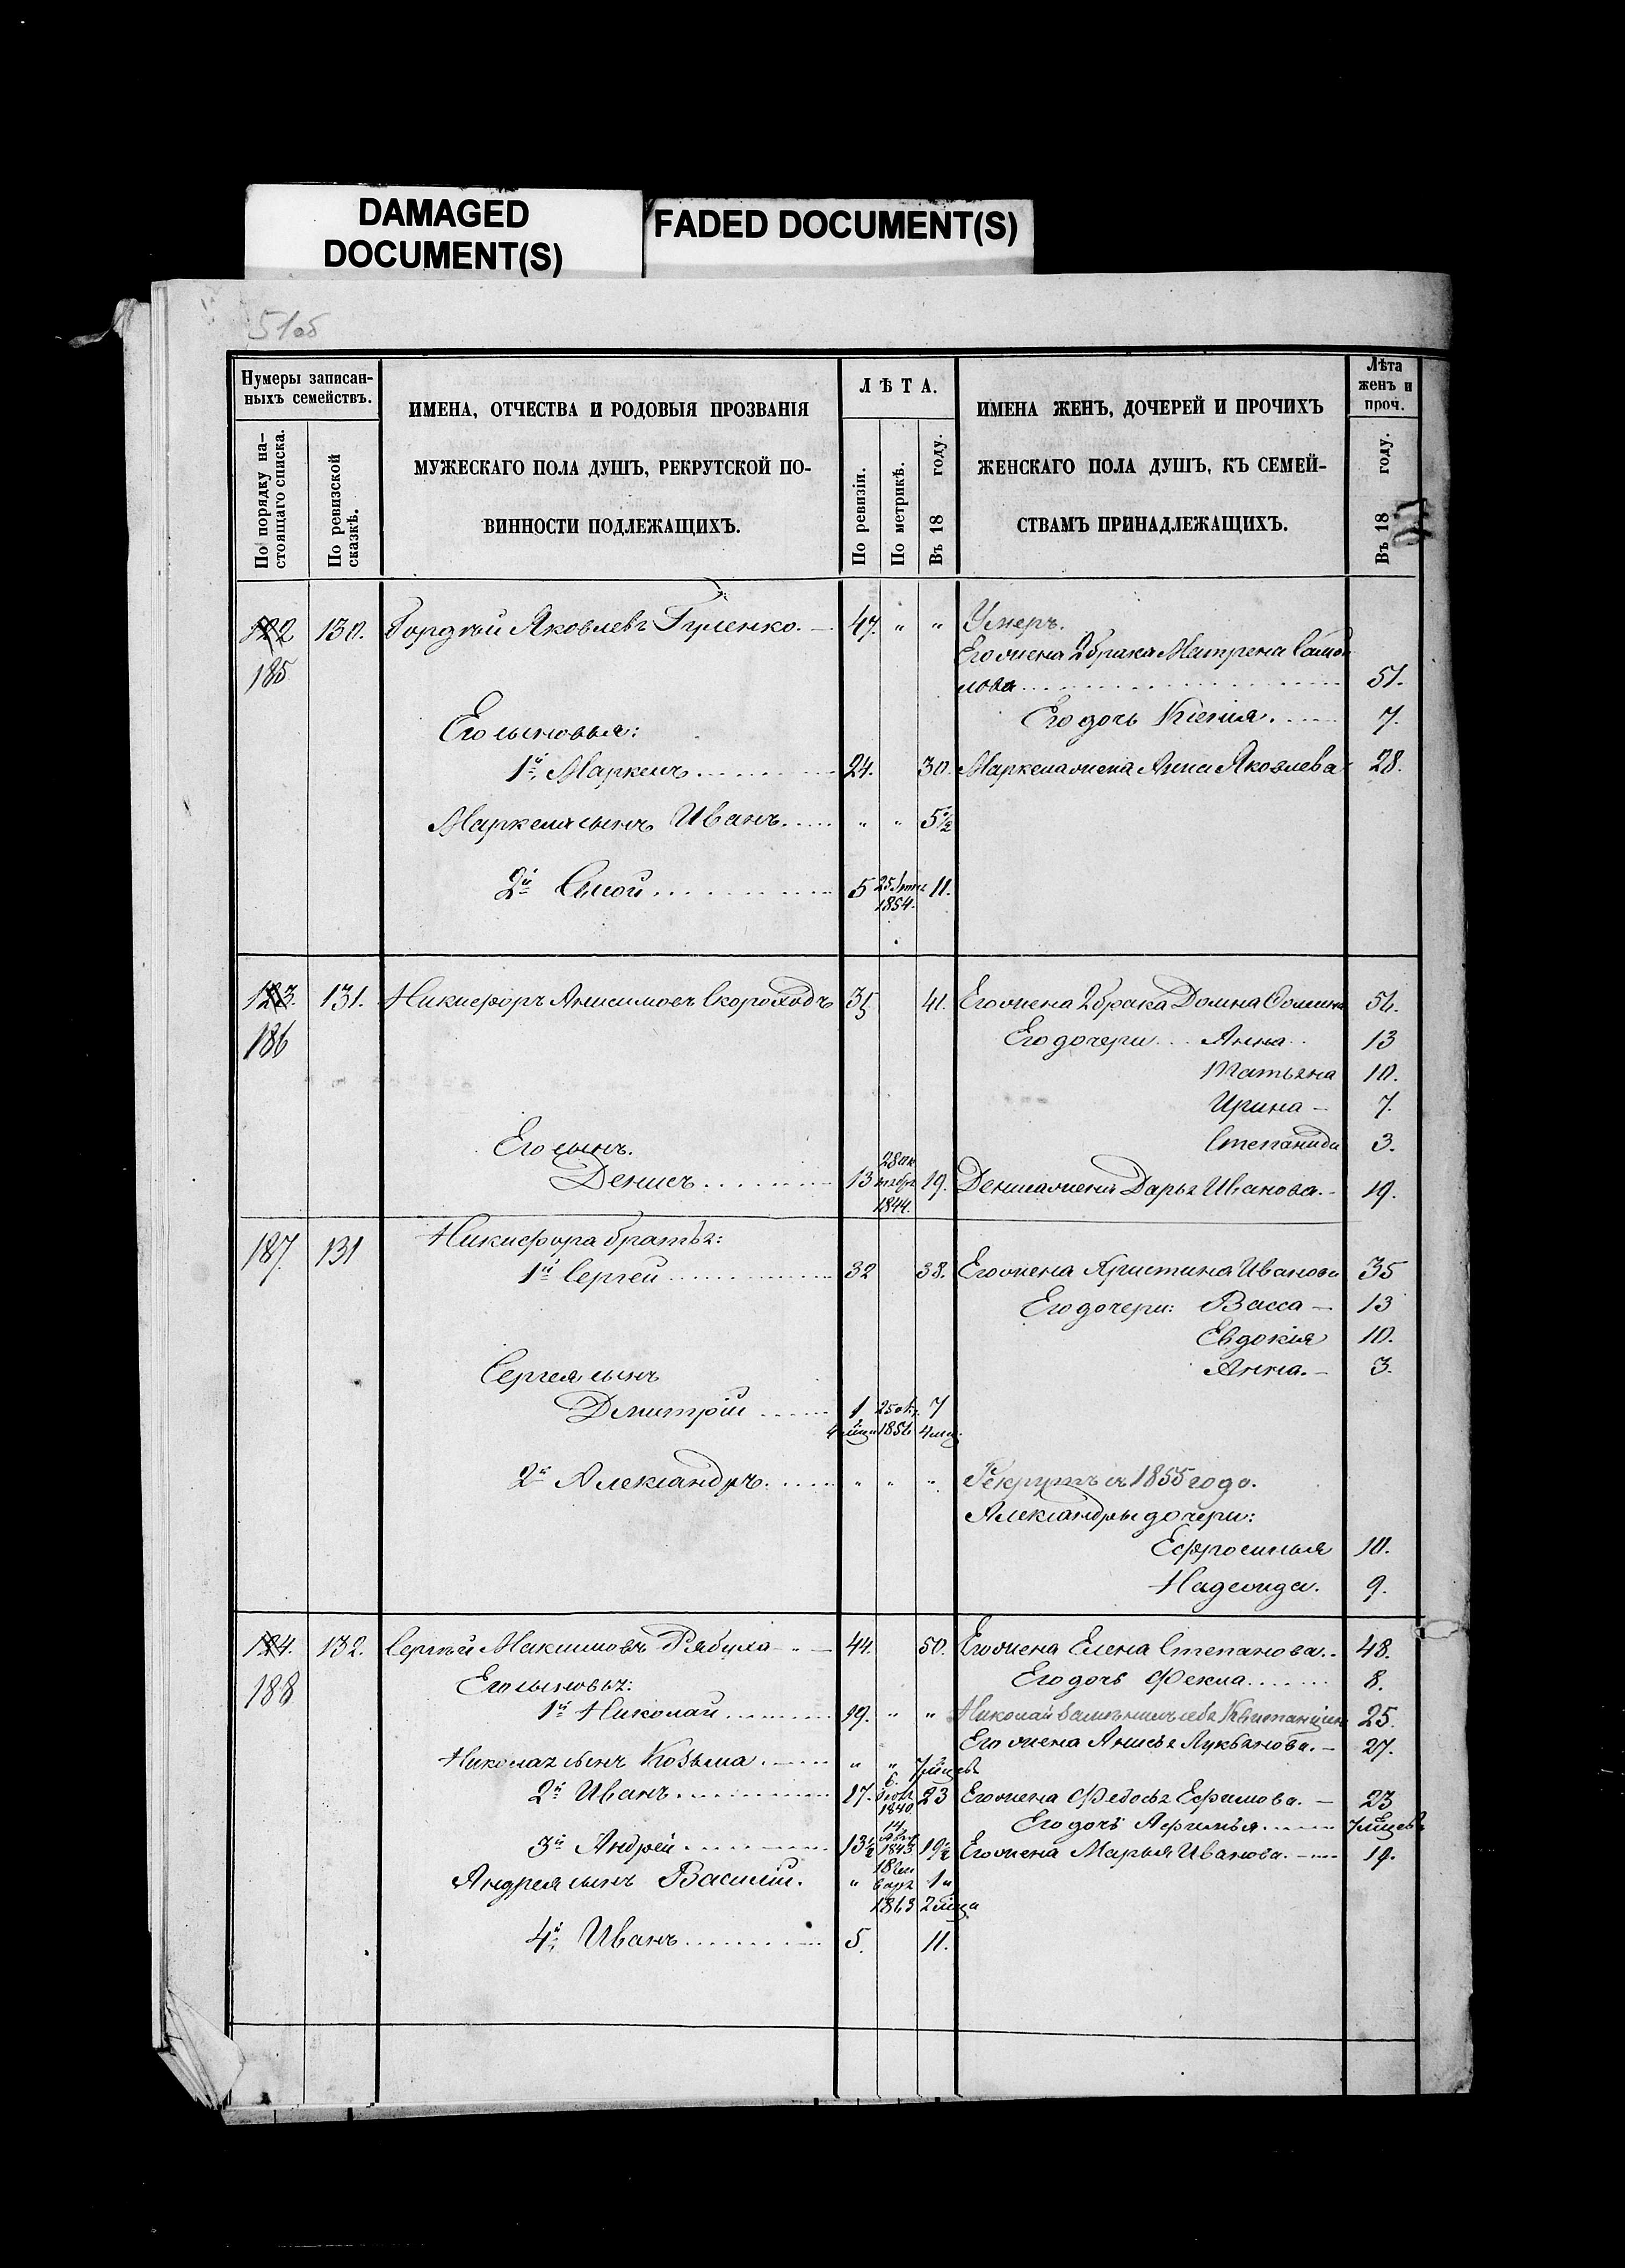 DAMAGED
DOCUMENT(S)
FADED DOCUMENT(S)
51об
Нумеры записан-
ныхъ семействъ.
По порядку на-
стоящаго списка.
По ревизской
сказкѣ.
ИМЕНА, ОТЧЕСТВА И РОДОВЫЯ ПРОЗВАНІЯ
МУЖЕСКАГО ПОЛА ДУШЪ, РЕКРУТСКОЙ ПО-
ВИННОСТИ ПОДЛЕЖАЩИХЪ.
ЛѢТА.
По ревизіи.
По метрикѣ.
Въ 18 году.
ИМЕНА ЖЕНЪ, ДОЧЕРЕЙ И ПРОЧИХЪ
ЖЕНСКАГО ПОЛА ДУШЪ, КЪ СЕМЕЙ-
СТВАМЪ ПРИНАДЛЕЖАЩИХЪ.
Лѣта
женъ и
проч.
Въ 18 году.
122 130. Гордѣй Яковлевъ Гуленко. 47. " " Умеръ.
185 Его жена 2 брака Матрена Самой
лова 51.
Его дочь Ксенія. 7.
Его сыновья:
1й Маркелъ 24. 30. Маркела жена Анна Яковлева 28.
Маркела сынъ Иванъ " " 5 1/2
2й Сысой 5 25 1854. 11.
123. 131. Никифоръ Анисимовъ Скороходъ 35 41. Его жена 2 брака Домна Фомина
186 Его дочери Анна 13
Татьяна 10.
Ирина 7.
Степанида 3.
Его сынъ.
Денисъ 13 28 октября 1844. 19. Дениса жена Дарья Иванова. 19.
187. 131 Никифора братья:
1й Сергей 32 38. Его жена Христина Иванова 35
Его дочери: Васса 13
Евдокія 10.
Анна. 3.
Сергея сынъ
Дмитрій 1 25 окт. 1856 7
4 мѣц 4 мѣц.
2й Александръ " " " Рекрутъ съ 1855 года.
Александры дочери:
Ефросинья 10.
Надежда. 9.
124. 132. Сергѣй Максимовъ Рябуха 44. 50. Его жена Елена Степанова. 48.
188 Его сыновья: Его дочь Фекла 8.
1й Николай 19. " " Николай 25.
Его жена Анисья Лукьянова. 27.
Николая сынъ Козьма " " 7 мѣцевъ
2й Иванъ 17. 6 1840 23 Его жена Федосья Ефимова. 23
Его дочь Афимья 7 мѣцевъ
3й Андрей 13 1/2 14 1843 19 1/2 Его жена Марья Иванова. 19.
Андрея сынъ Василій. " 18 января 1863 1 и
2 мѣца
4й Иванъ 5. 11.